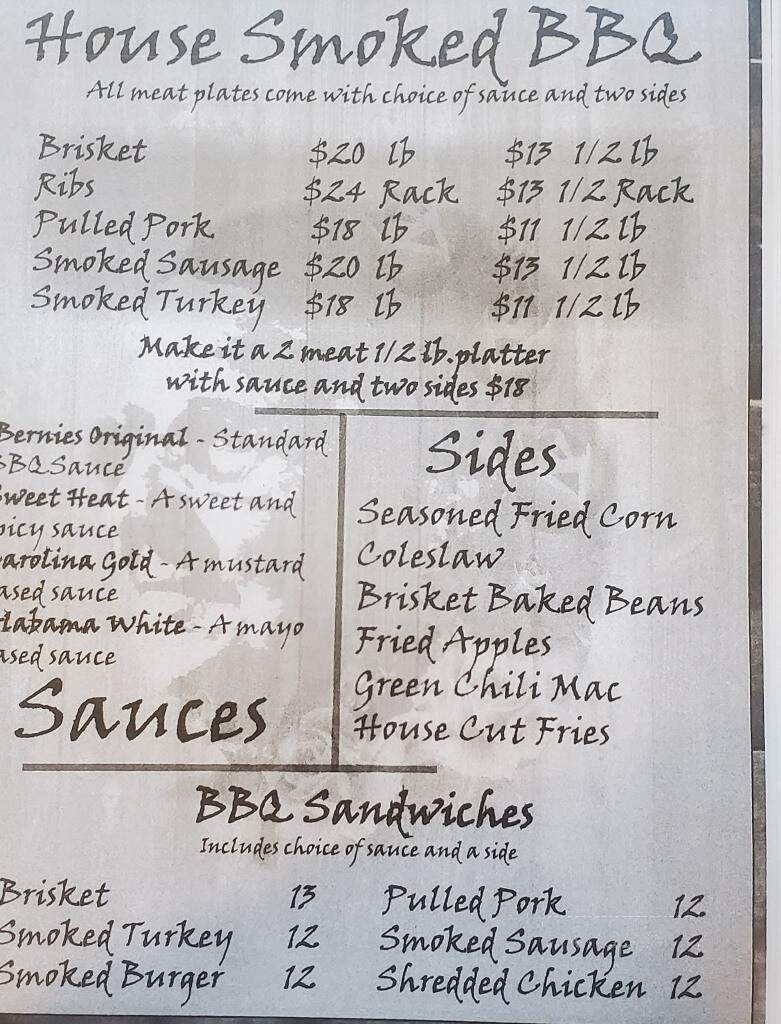 House Smoked BBQ
All meat plates come with choice of sauce and two sides
Brisket $20 lb $13 1/2 lb
Ribs $24 Rack $13 1/2 Rack
Pulled Pork $18 lb $11 1/2 lb
Smoked Sausage $20 lb $13 1/2 lb
Smoked Turkey $18 lb $11 1/2 lb
Make it a 2 meat 1/2 lb. platter
with sauce and two sides $18
Bernies Original - Standard
BBQ Sauce
Sweet Heat - A sweet and
picy sauce
arolina Gold - A mustard
ased sauce
labama White - A mayo
ased sauce
Sauces
Sides
Seasoned Fried Corn
Coleslaw
Brisket Baked Beans
Fried Apples
Green Chili Mac
House Cut Fries
BBQ Sandwiches
Includes choice of sauce and a side
Brisket 13
Smoked Turkey 12
Smoked Burger 12
Pulled Pork 12
Smoked Sausage 12
Shredded Chicken 12